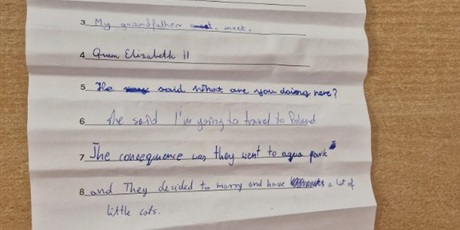 3 My grandfather meet.
4 Queen Elizabeth II
5 He said what are you doing here?
6 She said I'm going to travel to Poland
7 The consequence was they went to aqua park
8 and They decided to marry and have a lot of
little cats.